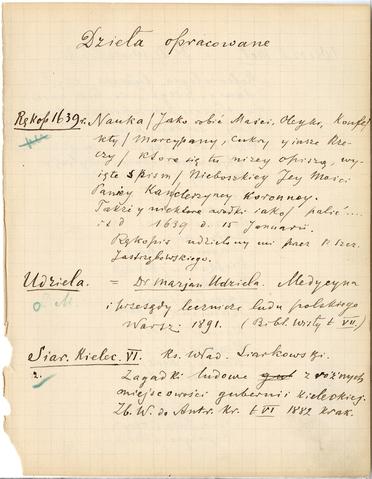 Dzieła opracowane
Rękop 1639 r. Nauka / Jako robić Maści, Oleyki, Konfek
kty / Marcypany, Cukry y insze Rze
czy / ktore się tu nizey opiszą, wy
ięte z pism / Nieboskiej Jey Maści
Paniey Kanclerzyney Koronney.
Także y niektore wodki iako palić....
itd 1639 d. 15 Januarii.
Rękopis udzielony mi przez
Jastrzębowskiego.
Udziela. = Dr Marjan Udziela. Medycyna
i przesądy lecznicze ludu polskiego
Warsz. 1891. (Bibl. Wisły t VII.)
Siar. Kielec. VI. Ks. Wład. Siarkowski.
2. Zagadki ludowe z różnych
miejscowości gubernii kieleckiej.
Zb. W. do Antr. Kr. t VI 1882 Krak.